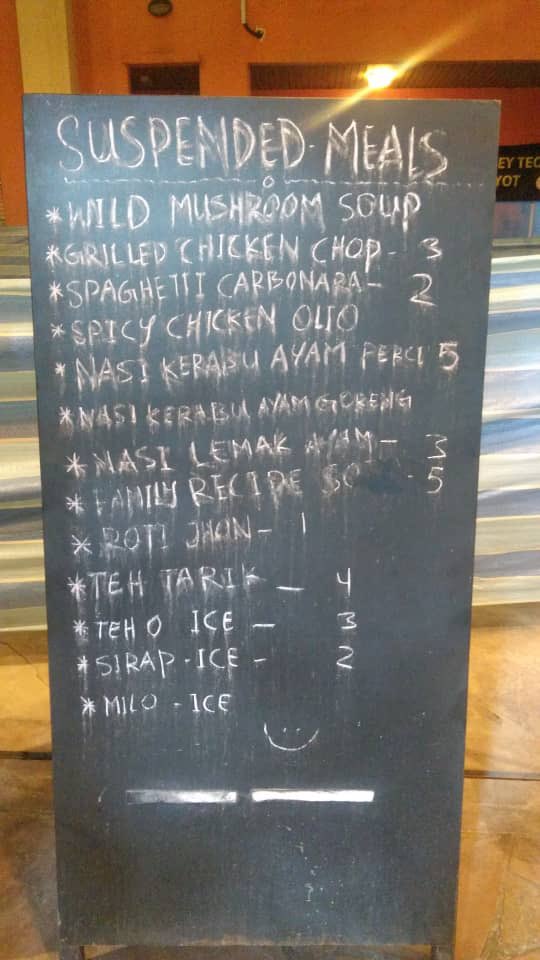 SUSPENDED-MEALS
*WILD MUSHROOM SOUP
*GRILLED CHICKEN CHOP - 3
*SPAGHETTI CARBONARA - 2
*SPICY CHICKEN OLIO
*NASI KERABU AYAM PERCI 5
*NASI KERABU AYAM GORENG
*NASI LEMAK AYAM - 3
*FAMILY RECIPE - 5
*ROTI JHON - 1
*TEH TARIK - 4
*TEH O ICE - 3
*SIRAP - ICE - 2
*MILO - ICE
EY TEC
YOT